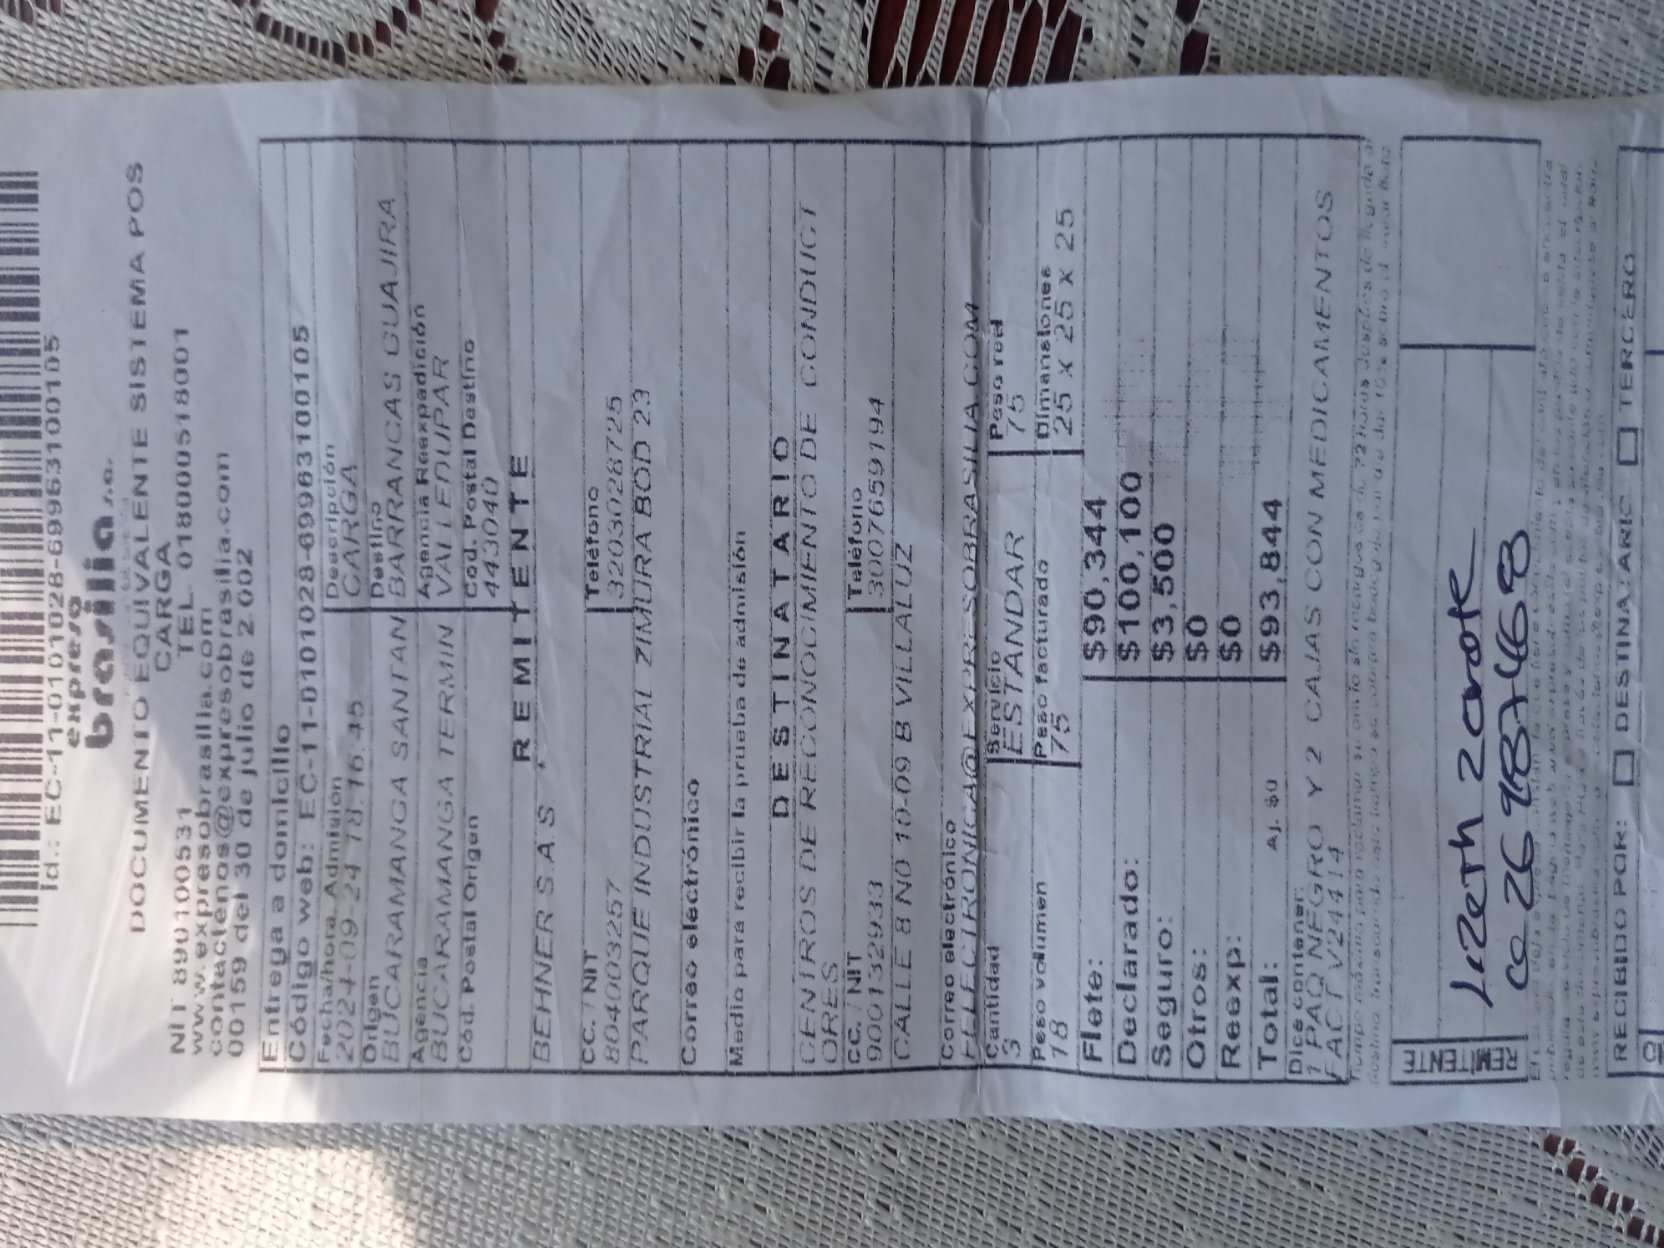 Id.: EC-11-0101028-699631001 05
expreso
brasilia s.a.
DOCUMENTO EQUIVALENTE SISTEMA POS
CARGA
NIT 890100531 TEL. 018000518001
www.expresobrasilia.com
contactenos@expresobrasilia.com
00159 del 30 de julio de 2.002
Entrega a domicilio
Código web: EC-11-0101028-69963100105
Fecha/hora Admisión Descripción
2024-09-24 18:16:45 CARGA
Origen Destino
BUCARAMANGA SANTAN BARRANCAS GUAJIRA
Agencia Agencia Reexpadición
BUCARAMANGA TERMIN VALLEDUPAR
Cód. Postal Origen Cod. Postal Destino
443040
REMITENTE
BEHNER S.A.S *
CC. / NIT Teléfono
8040003257 3203028725
PARQUE INDUSTRIAL ZIMURA BOD 23
Correo electrónico
Medio para recibir la prueba de admisión
DESTINATARIO
CENTROS DE RECONOCIMIENTO DE CONDUCT
ORES
CC. / NIT Teléfono
900132933 3007659194
CALLE 8 NO 10-09 B VILLALUZ
Correo electrónico
FELECTRONICA@EXPRESOBRASILIA.COM
Cantidad Servicio Peso real
3 ESTANDAR 75
Peso volumen Peso facturado Dimensiones
18 75 25 X 25 X 25
Flete: $90,344
Declarado: $100,100
Seguro: $3,500
Otros: $0
Reexp: $0
Total: Aj. $0 $93,844
Dice contener:
1 PAQ NEGRO Y 2 CAJAS CON MEDICAMENTOS
FACT V24414
REMITENTE
Lizeth Zarate
RECIBIDO POR: DESTINATARIO TERCERO